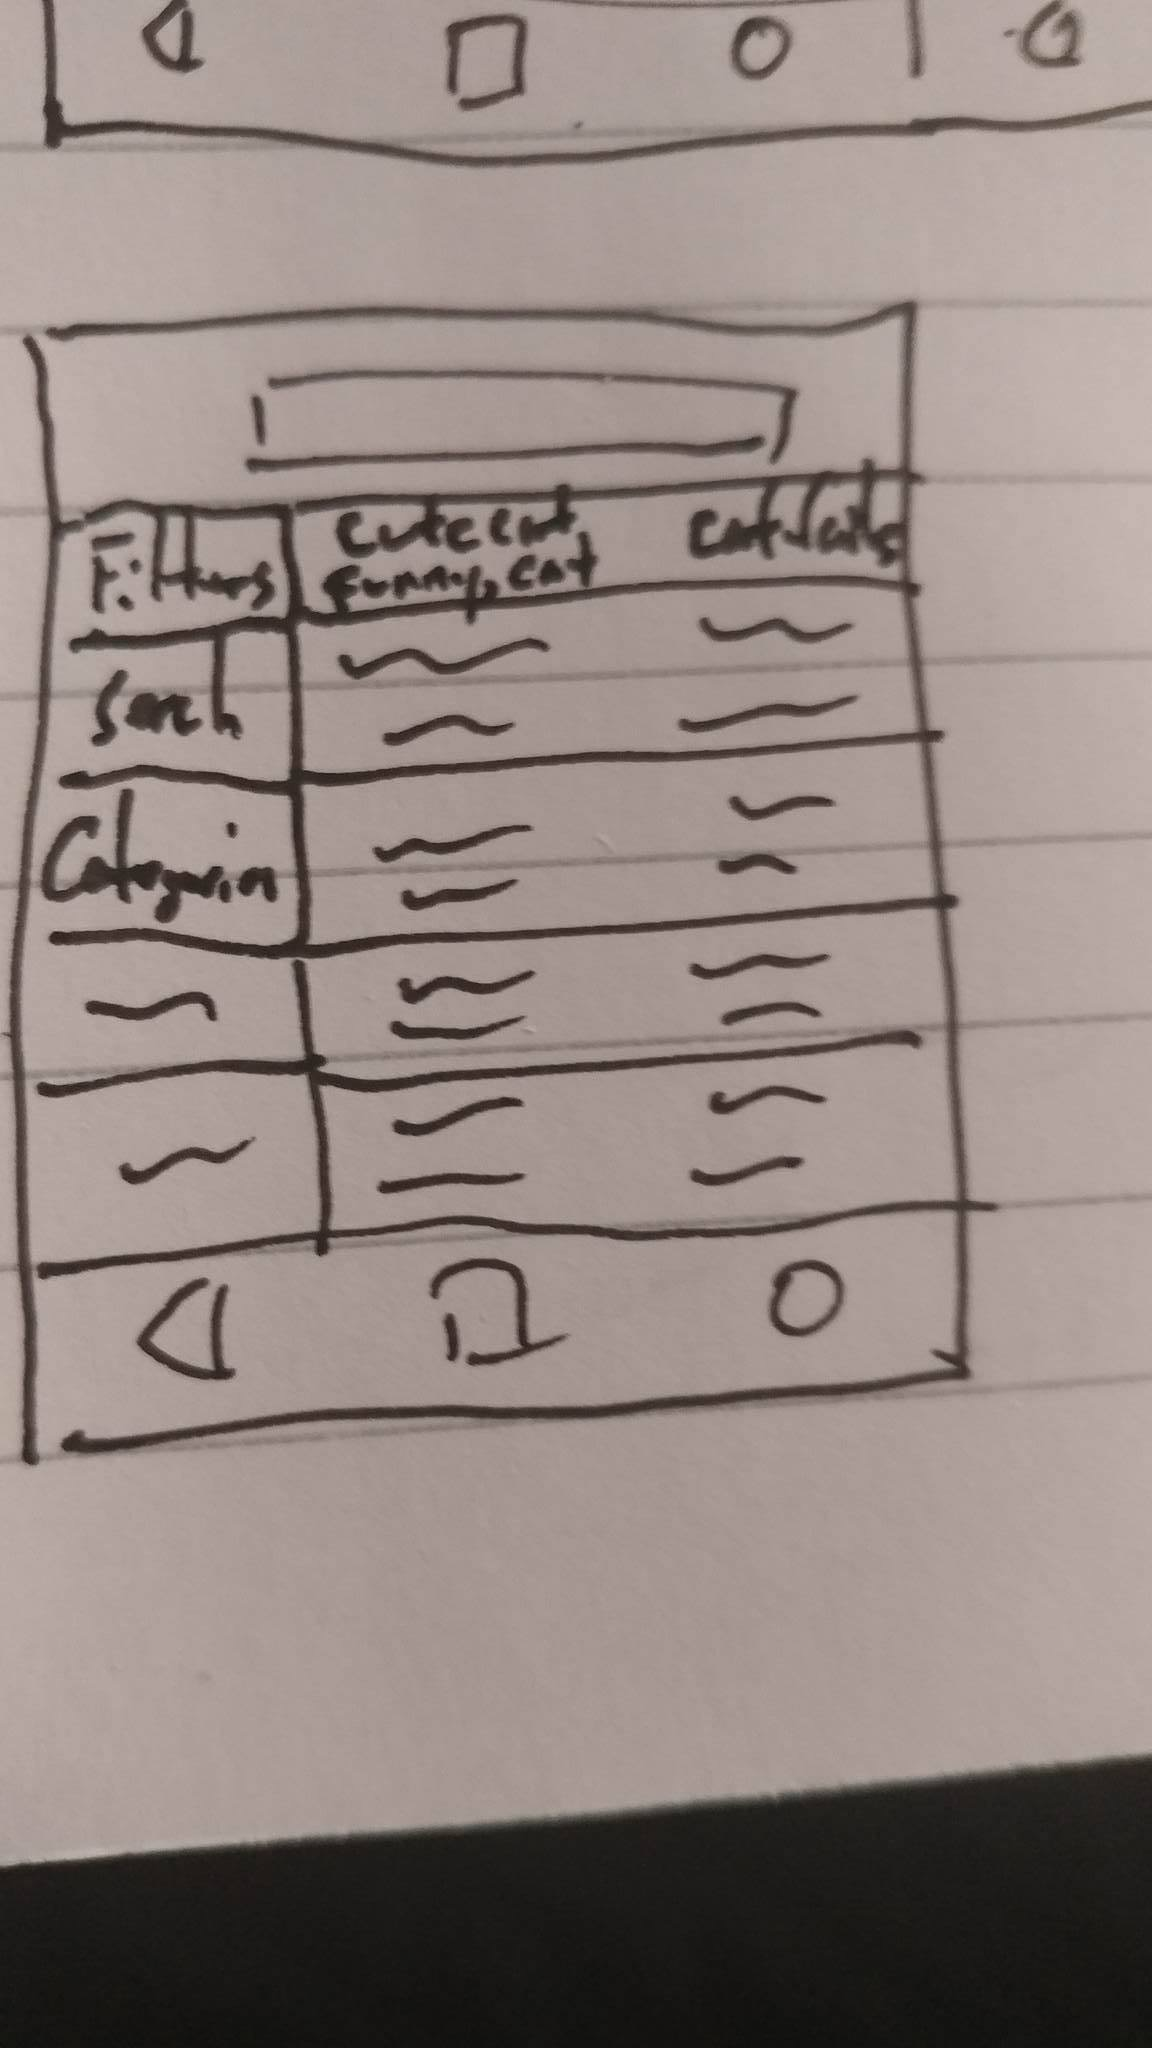 Filters
cute cat,
funny, cat
cat fails
Serch
Categories